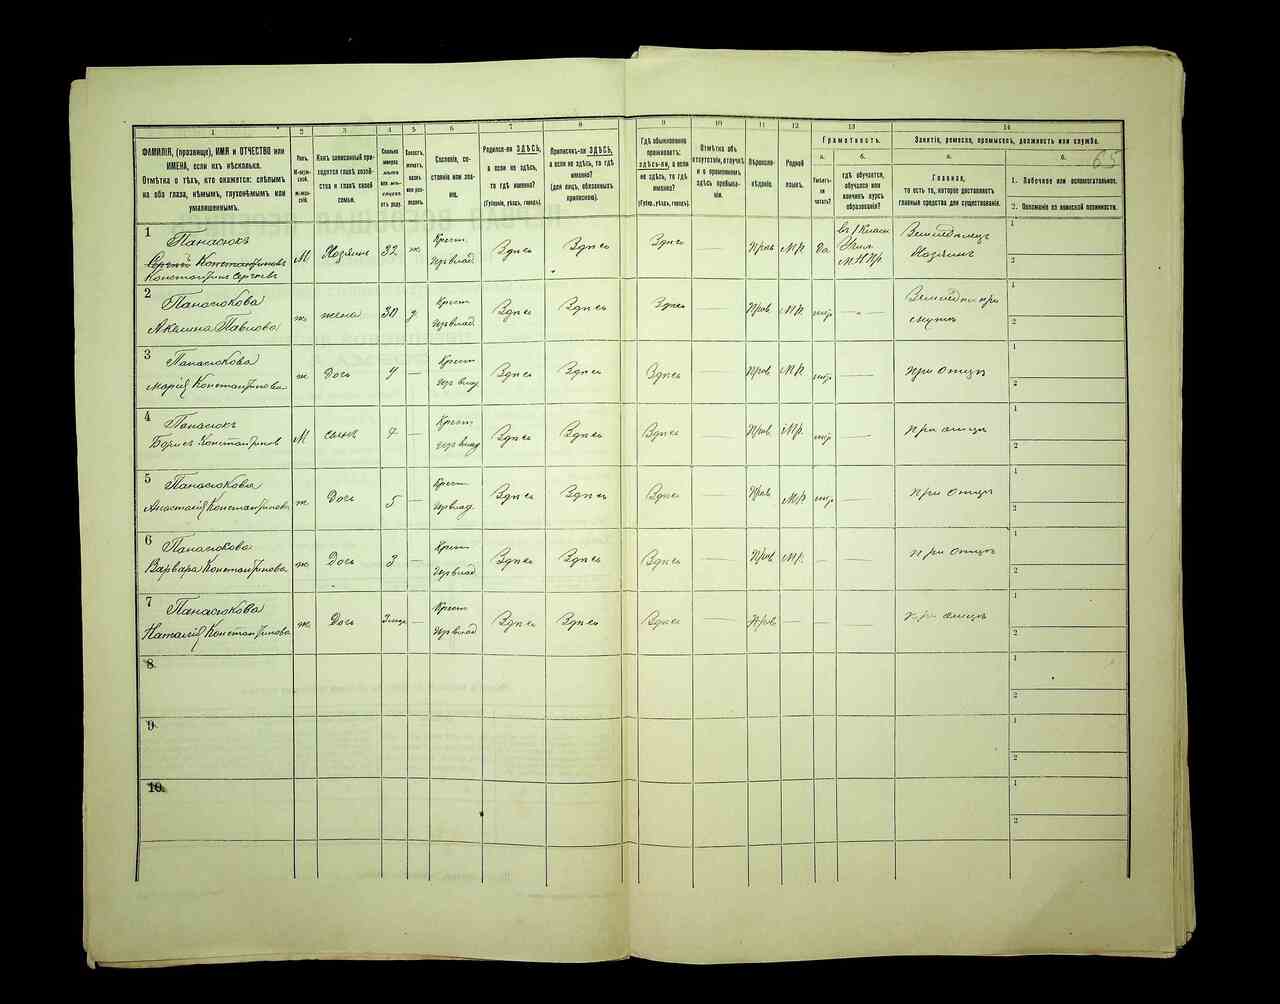 1 2 3 4 5 6 7 8 9 10 11 12 13 14
65
ФАМИЛІЯ, (прозвище), ИМЯ и ОТЧЕСТВО или
ИМЕНА, если ихъ нѣсколько.
Отмѣтка о тѣхъ, кто окажется: слѣпымъ
на оба глаза, нѣмымъ, глухонѣмымъ или
умалишеннымъ.
Полъ.
М-муж-
ской.
Ж-жен-
скій.
Какъ записанный при-
ходится главѣ хозяй-
ства и главѣ своей
семьи.
Сколько
минуло
лѣтъ
или мѣ-
сяцевъ
отъ роду.
Холостъ,
женатъ,
вдовъ
или раз-
веденъ.
Сословіе, со-
стояніе или зва-
ніе.
Родился-ли ЗДѢСЬ,
а если не здѣсь,
то гдѣ именно?
(Губернія, уѣздъ, городъ).
Приписанъ-ли ЗДѢСЬ,
а если не здѣсь, то гдѣ
именно?
(Для лицъ, обязанныхъ
припискою).
Гдѣ обыкновенно
проживаетъ:
здѣсь-ли, а если
не здѣсь, то гдѣ
именно?
(Губер., уѣздъ, городъ).
Отмѣтка объ
отсутствіи, отлучкѣ
и о временномъ
здѣсь пребыва-
ніи.
Вѣроиспо-
вѣданіе.
Родной
языкъ.
Грамотность.
а.
Умѣетъ-
ли
читать?
б.
гдѣ обучается,
обучался или
кончилъ курсъ
образованія?
Занятіе, ремесло, промыселъ, должность или служба.
а.
Главное,
то есть то, которое доставляетъ
главныя средства для существованія.
б.
1. Побочное или вспомогательное.
2. Положеніе по воинской повинности.
1 Панасюкъ
Сергѣй Константиновъ
Константинъ Сергѣевъ
М Хозяинъ 32 ж Крест. Здѣсь Здѣсь Здѣсь Прав М.р. Да въ 1 Класн
М.Н.Пр.
Земледѣлецъ
Хозяинъ
1
2
2 Панасюкова
Акелина Павлова
ж жена 30 Крест Здѣсь Здѣсь Здѣсь Прав М.р.
1
2
3 Панасюкова
Марія Константинова
ж Дочь 9 — Крест Здѣсь Здѣсь Здѣсь — Прав М.р. — При отцѣ
1
2
4 Панасюкъ
Борисъ Константинов
М сынъ 7 — Крест Здѣсь Здѣсь Здѣсь — Прав М.р. — При отцѣ
1
2
5 Панасюкова
Анастасія Константинова
ж Дочь 5 — Крест Здѣсь Здѣсь Здѣсь — Прав М.р. — При отцѣ
1
2
6 Панасюкова
Варвара Константинова
ж Дочь 3 — Крест Здѣсь Здѣсь Здѣсь — Прав М.р. — — При отцѣ
1
2
7 Панасюкова
Наталія Константинова
ж Дочь — Крест Здѣсь Здѣсь Здѣсь — Прав — — — При отцѣ
1
2
8
1
2
9
1
2
10
1
2